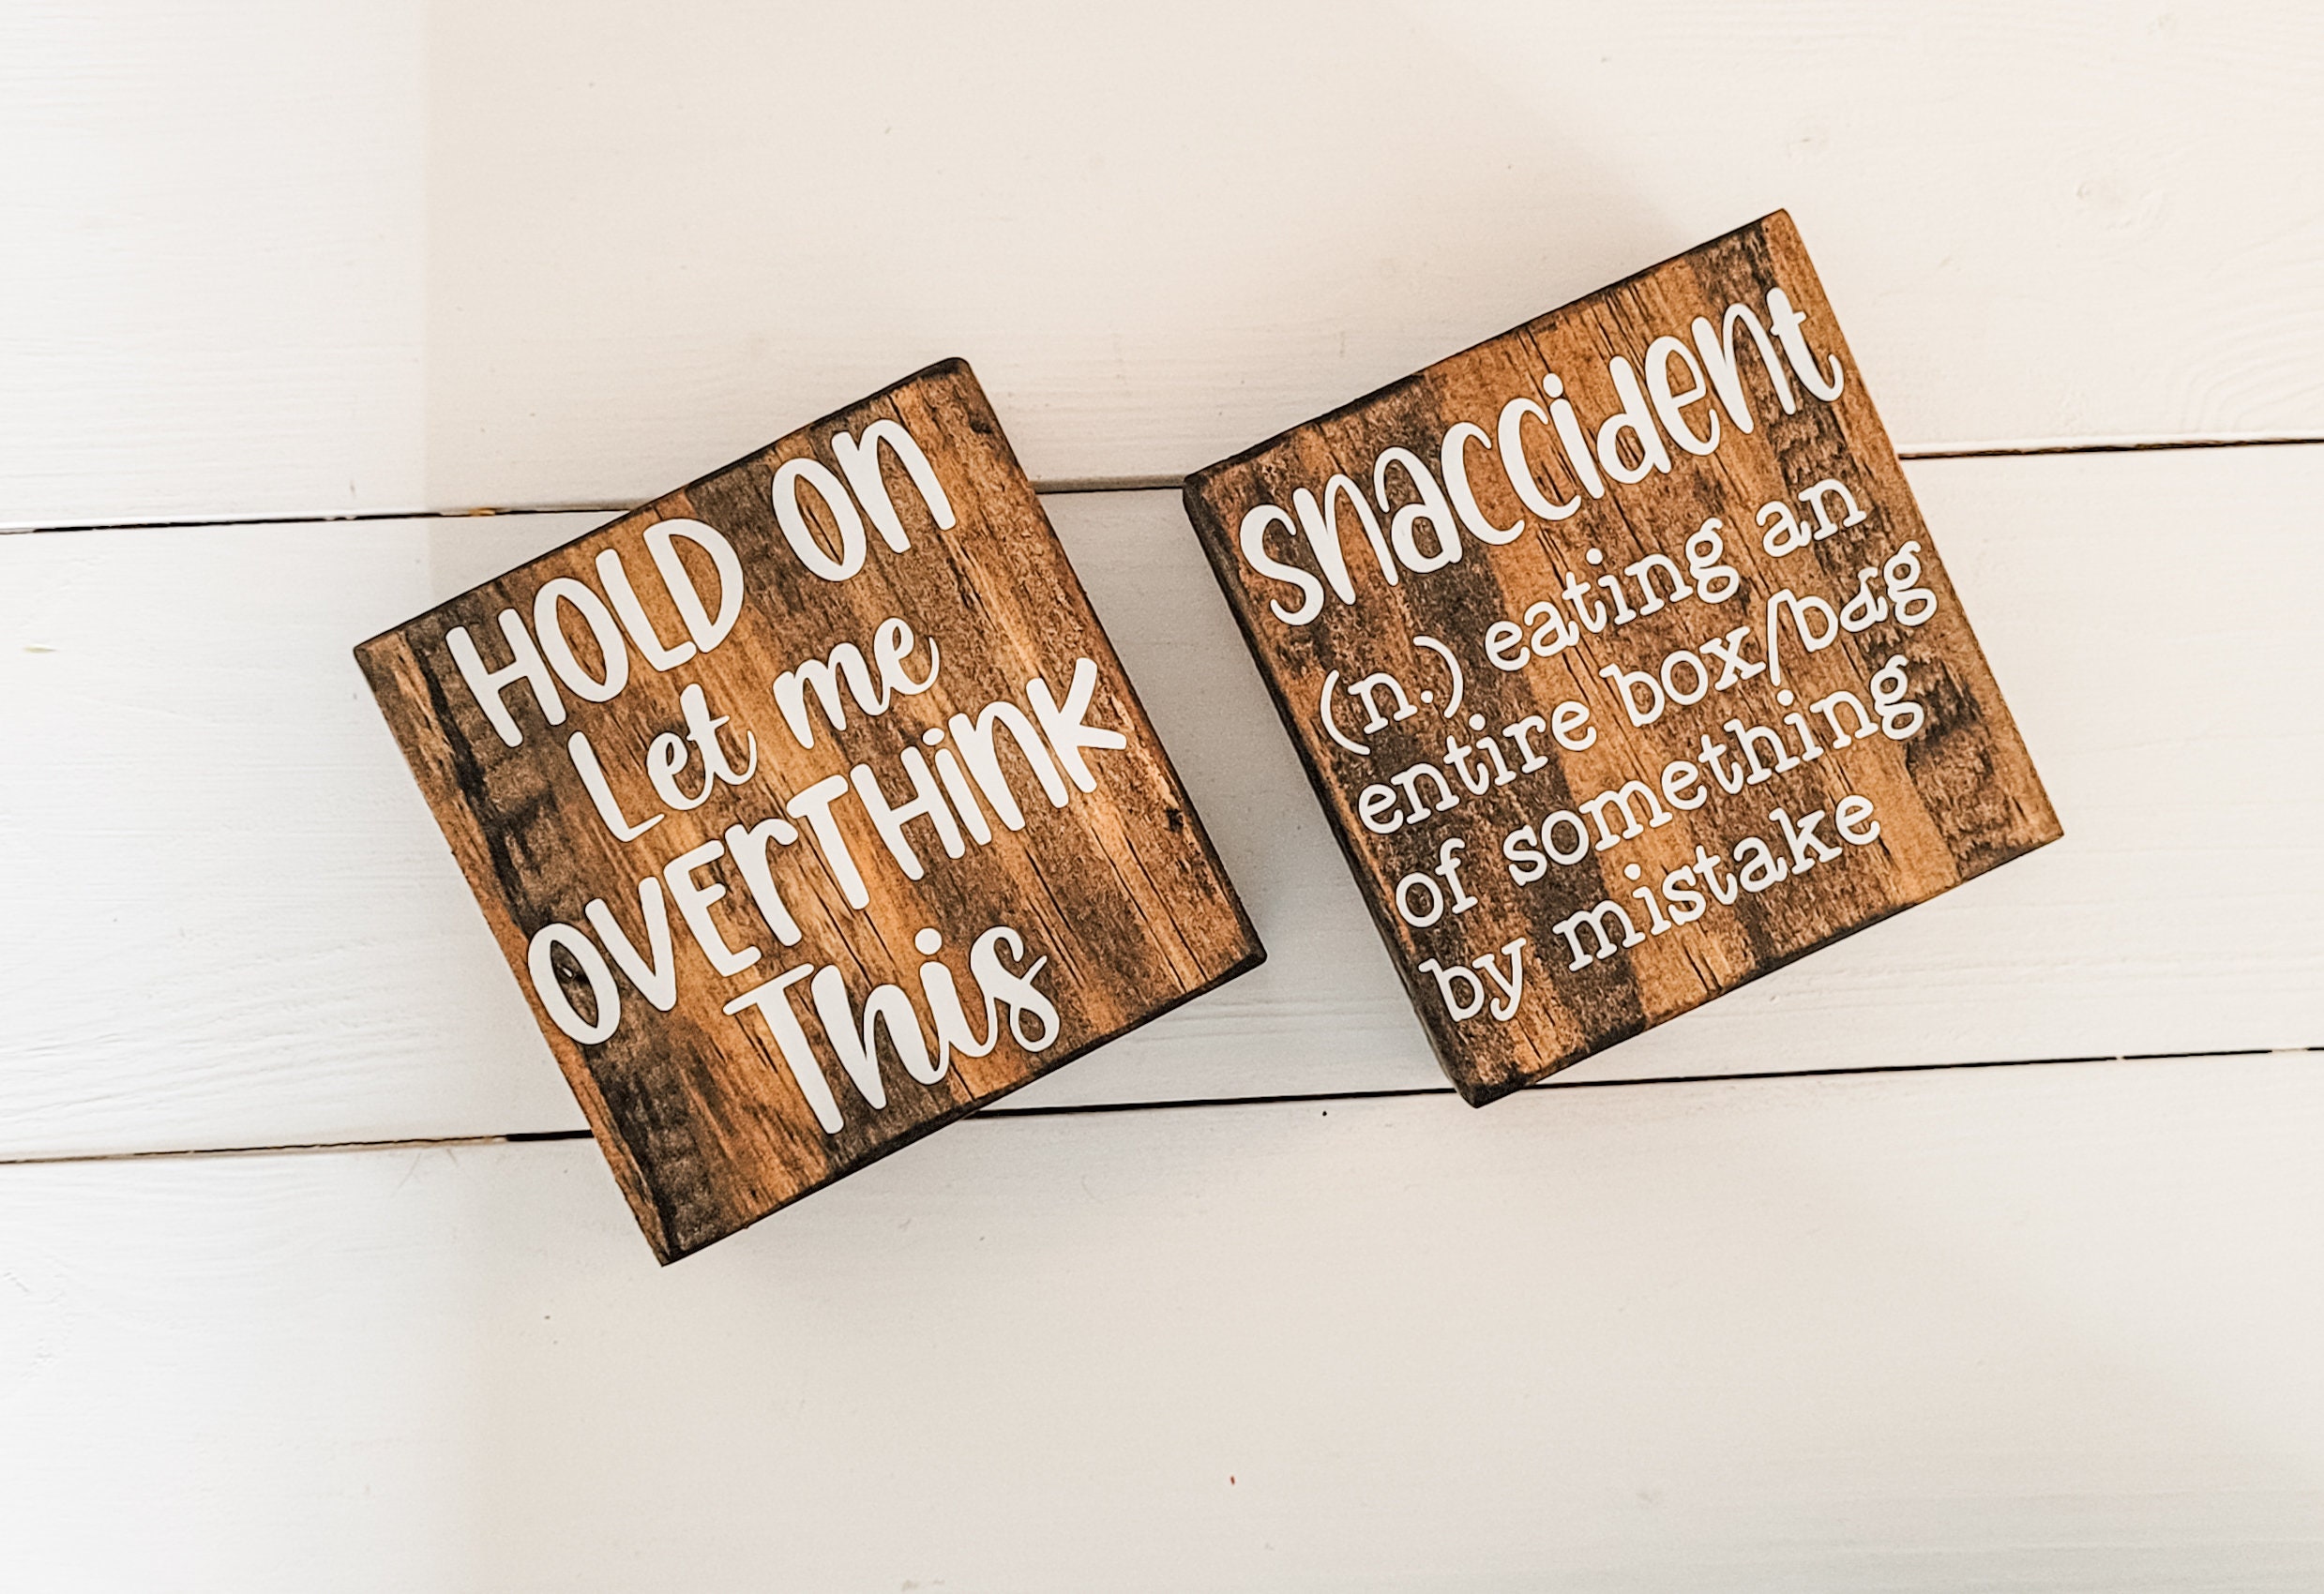 HOLD ON
Let me
OVERTHINK
This
snaccident
(n.) eating an
entire box/bag
of something
by mistake